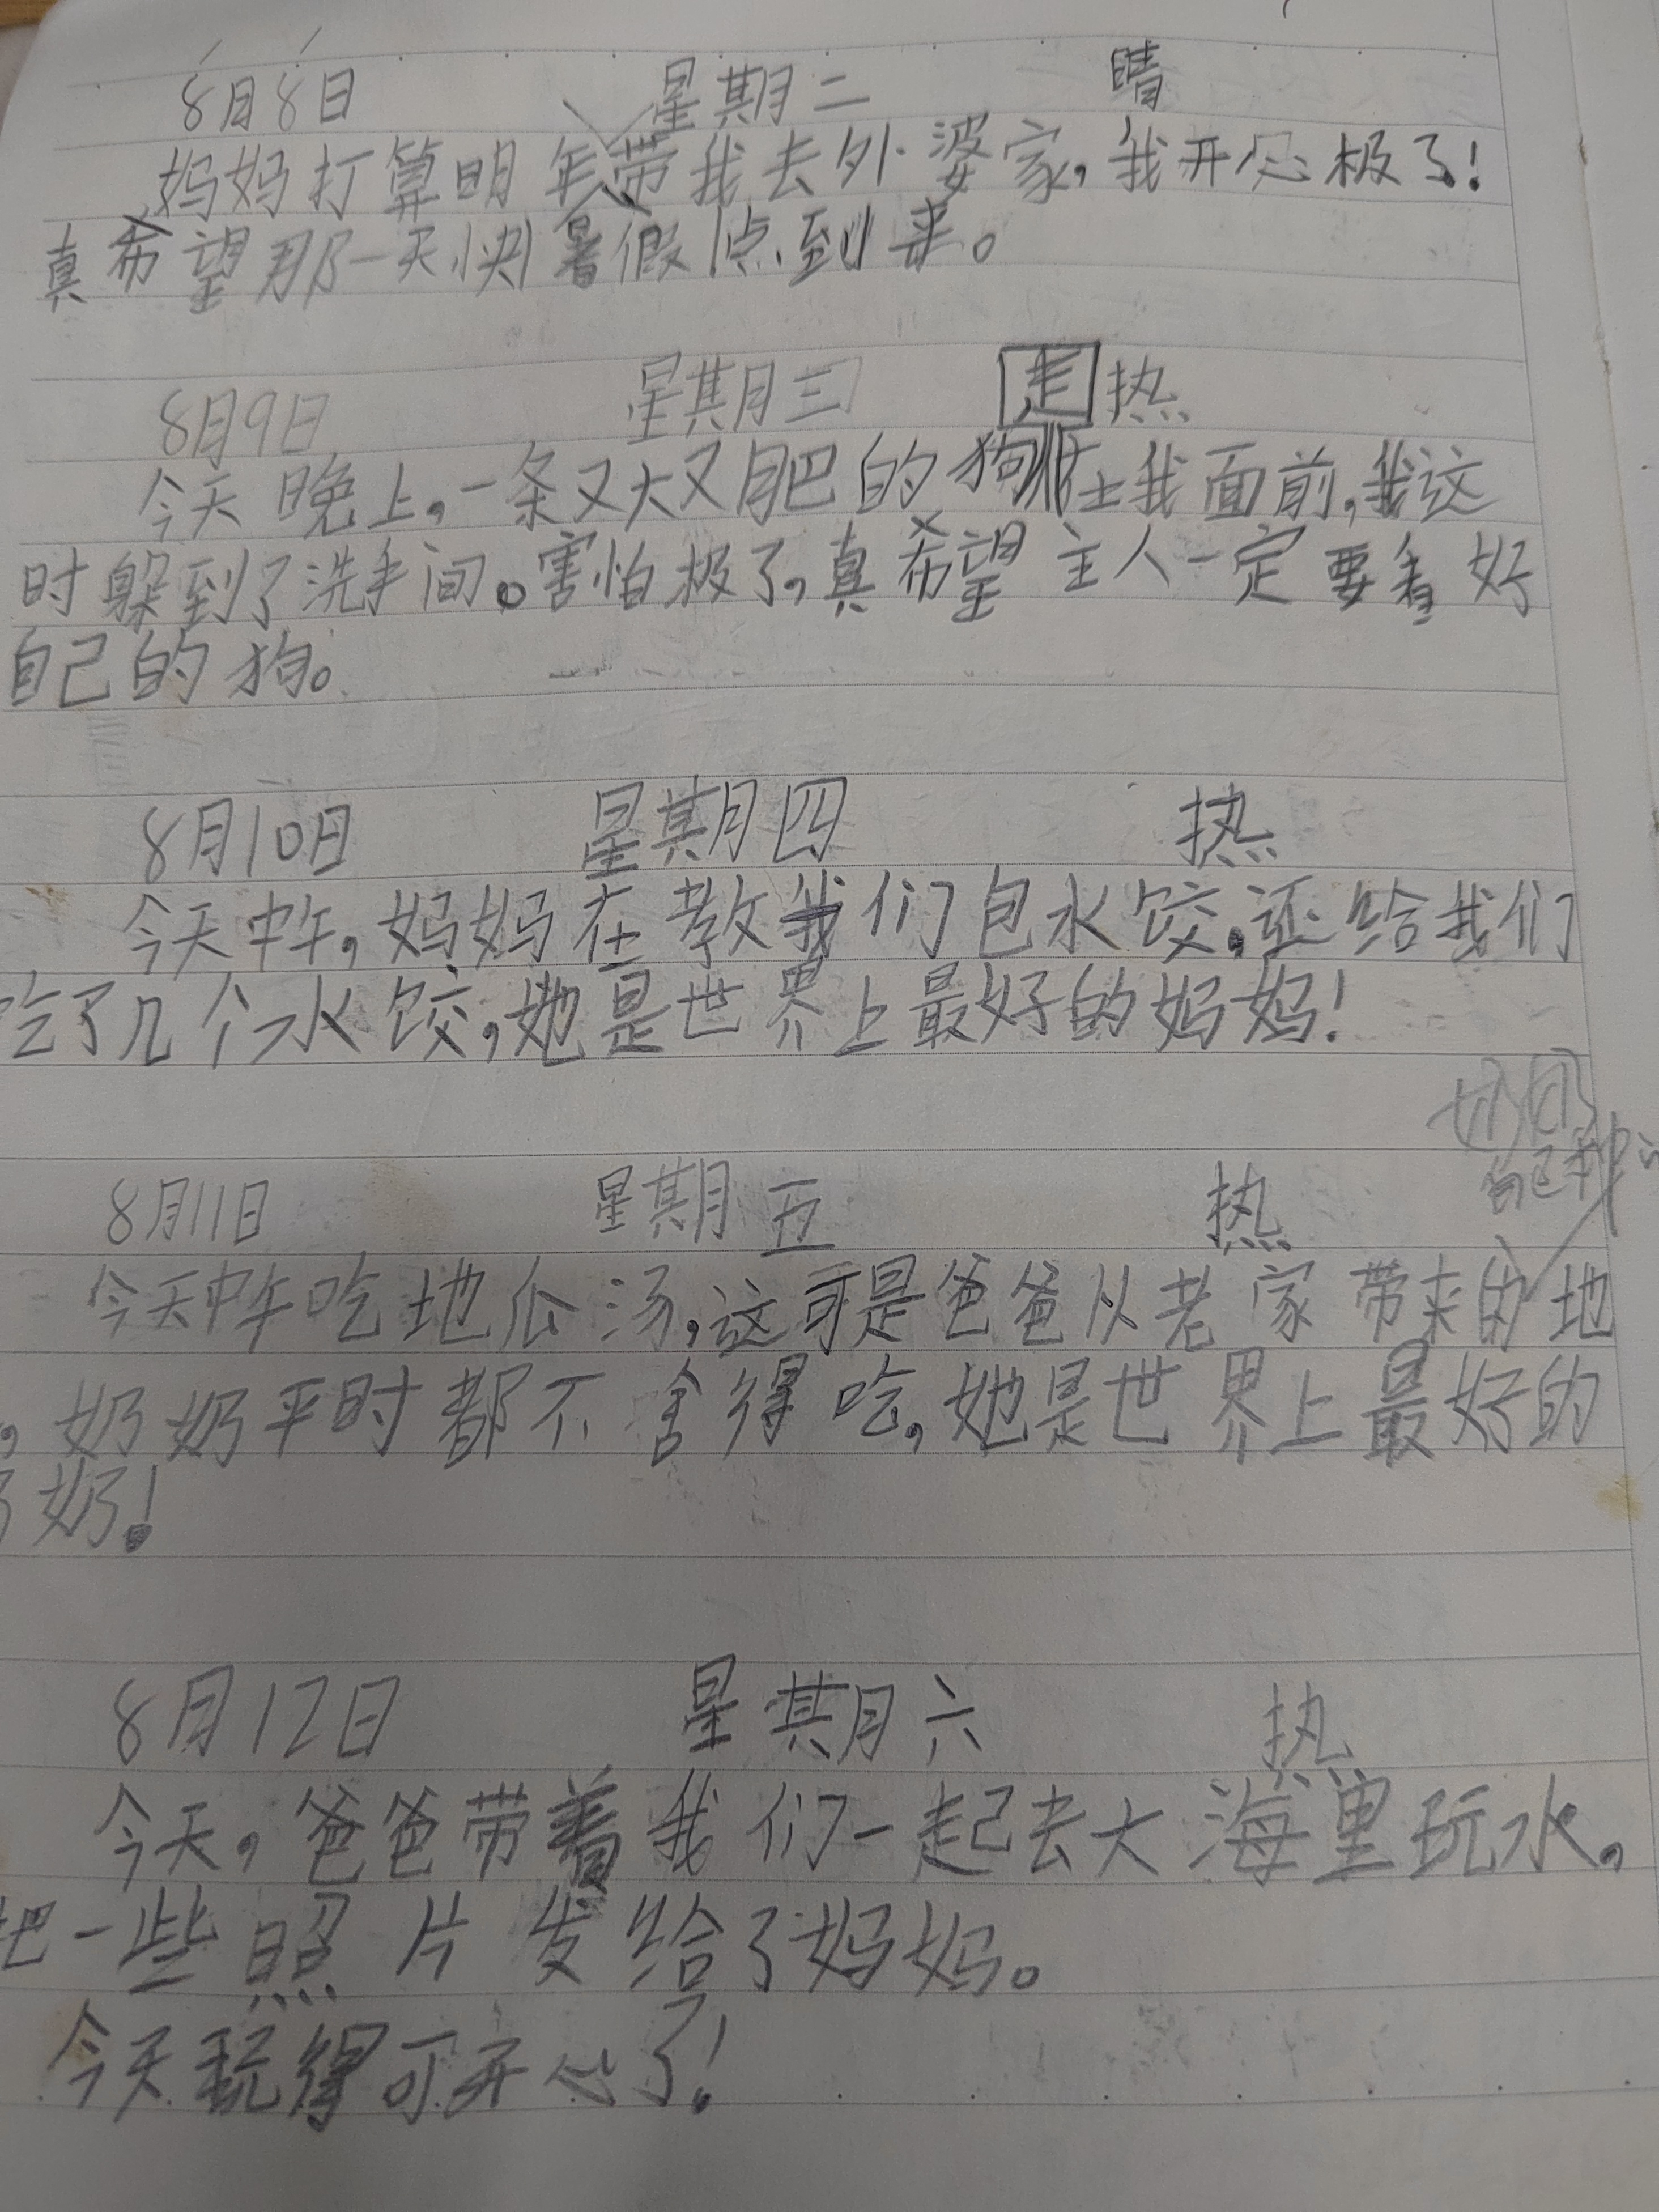 8月8日 星期二 晴
妈妈打算明年带我去外婆家,我开心极了!
暑假
真希望那一天快点到来。
8月9日 星期三 热
今天晚上,一条又大又肥的狗在我面前,我这
时躲到了洗手间。害怕极了,真希望主人一定要看好
自己的狗。
8月10日 星期四 热
今天中午,妈妈在教我们包水饺,还给我们
吃了几个水饺,她是世界上最好的妈妈!
8月11日 星期五 热
今天中午吃地瓜汤,这可是爸爸从老家带来的地
,奶奶平时都不舍得吃,她是世界上最好的
奶!
8月12日 星期六 热
今天,爸爸带着我们一起去大海里玩水,
把一些照片发给了妈妈。
今天玩得可开心了!